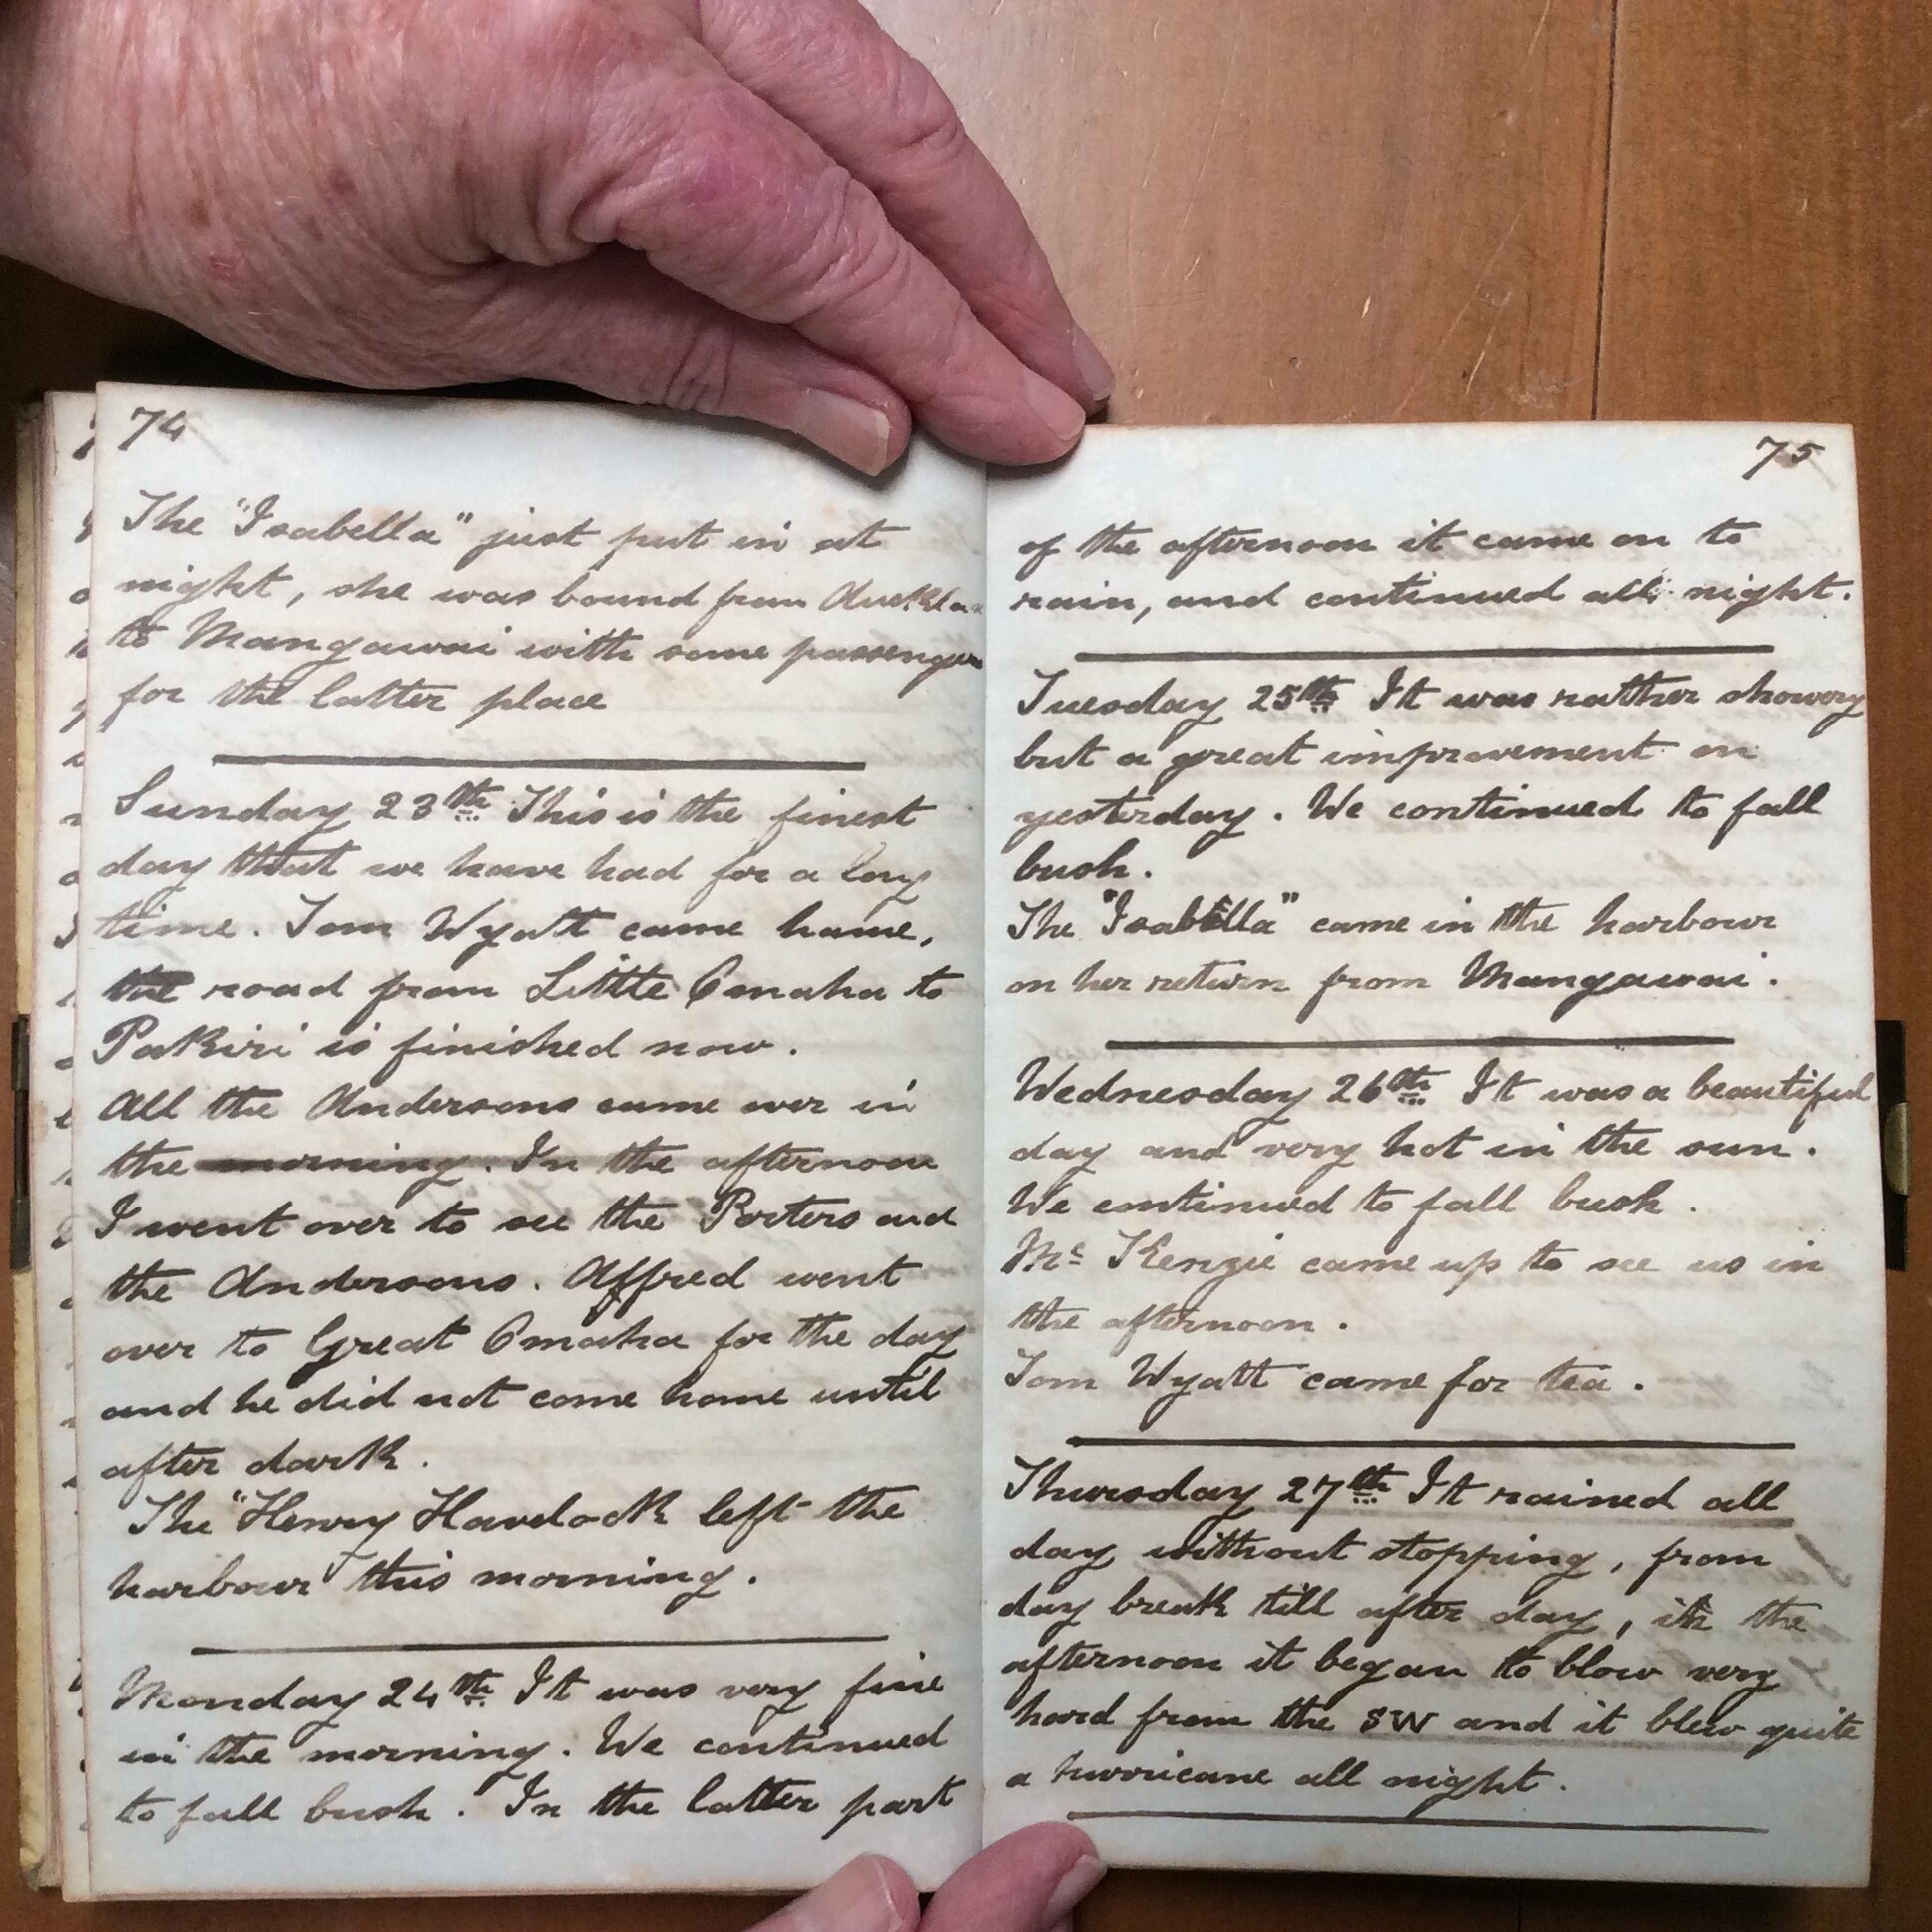 74
The "Isabella" just put in at
night, she was bound from Auckla
to Mangawai with some passengers
for the latter place
Sunday 23th This is the finest
day that we have had for a long
time. Tom Wyatt came home,
the road from Little Omaha to
Pakiri is finished now.
All the Andersons came over in
the morning. In the afternoon
I went over to see the Porters and
the Andersons. Alfred went
over to Great Omaha for the day
and he did not come home until
after dark.
The "Henry Havelock left the
harbour this morning.
Monday 24th It was very fine
in the morning. We continued
to fall bush. In the latter part
75
of the afternoon it came on to
rain, and continued all night.
Tuesday 25th It was rather showery
but a great improvement on
yesterday. We continued to fall
bush.
The "Isabella" came in the harbour
on her return from Mangawai.
Wednesday 26th It was a beautiful
day and very hot in the sun.
We continued to fall bush.
Mc Kenzie came up to see us in
the afternoon.
Tom Wyatt came for tea.
Thursday 27th It rained all
day without stopping, from
day break till after day, in the
afternoon it began to blow very
hard from the SW and it blew quite
a hurricane all night.